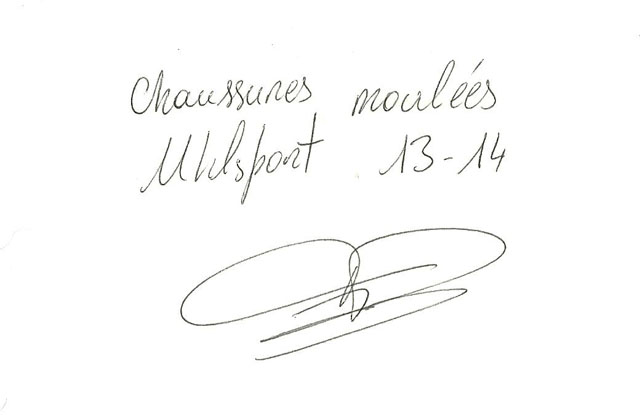 Chaussures moulées
Uhlsport 13-14